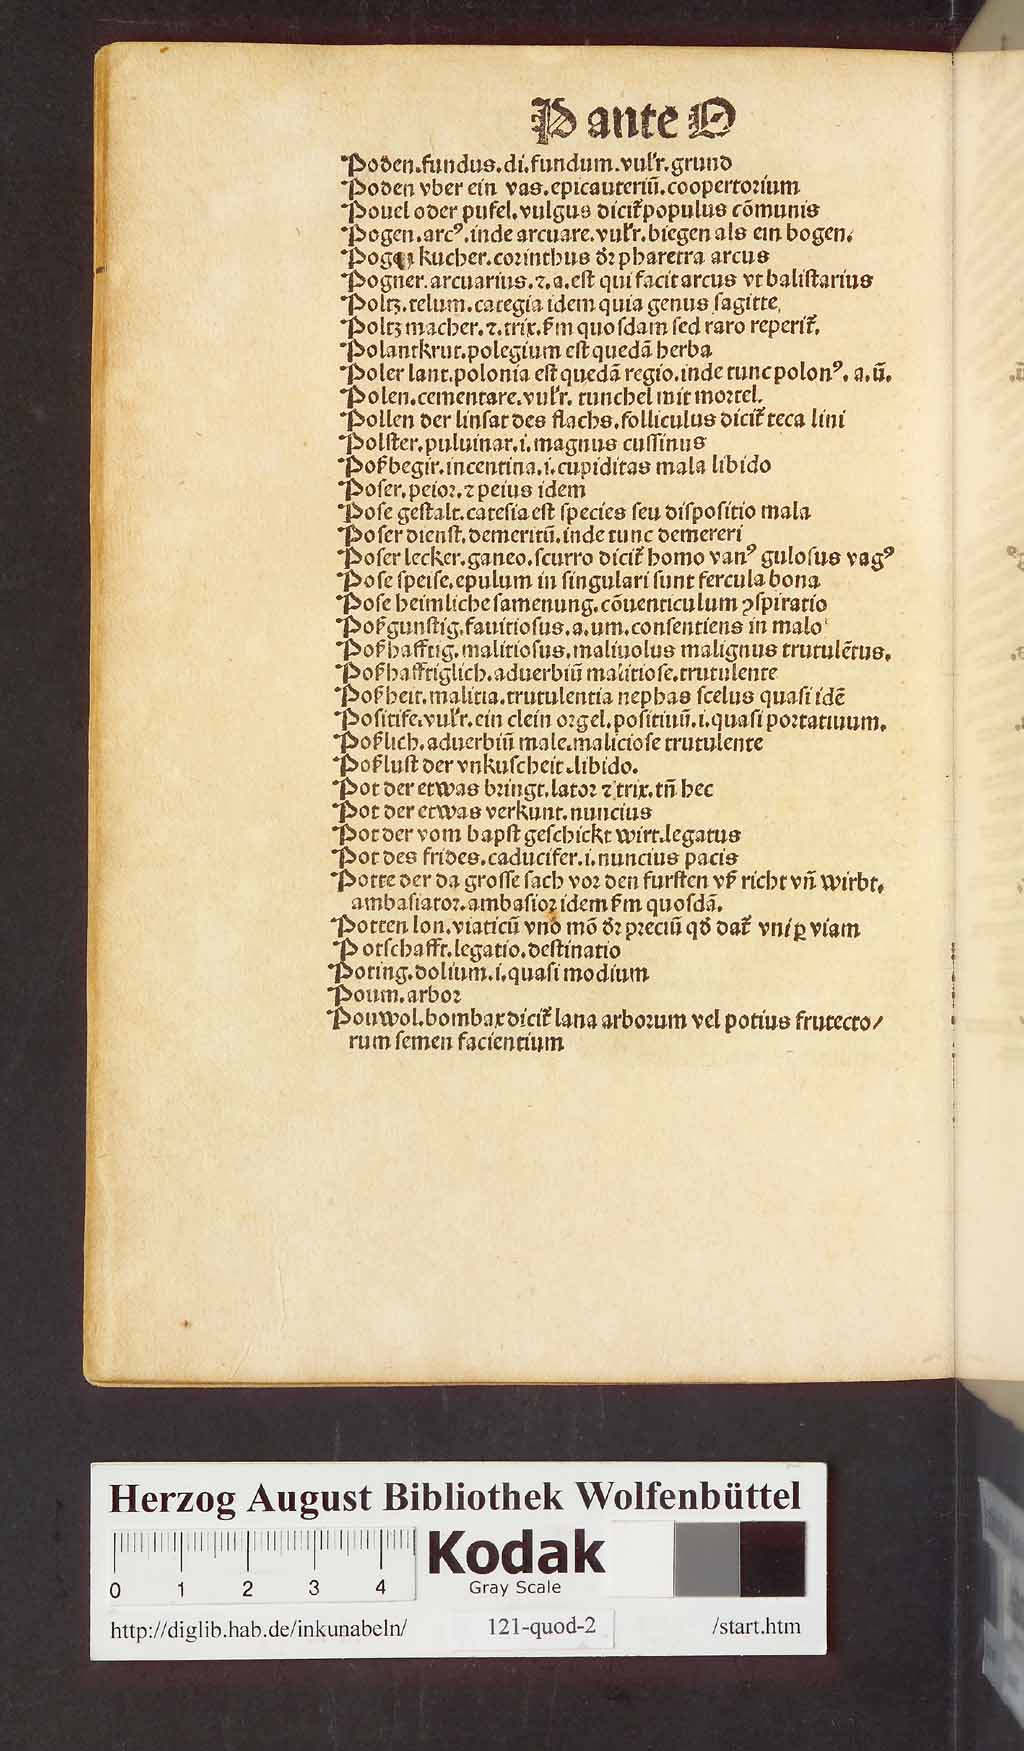 P ante O
Poden.fundus.di.fundum.vulꝛ.grund
Poden vber ein vas.epicauteriū.coopertoꝛium
Pouel oder pufel.vulgus dicit᷑ populus cōmunis
Pogen.arcꝰ.inde arcuare.vulꝛ.biegen als ein bogen.
Pogen kucher.coꝛinthus dꝛ pharetra arcus
Pogner.arcuarius.⁊.a.est qui facit arcus vt balistarius
Poltz.telum.categia idem quia genus sagitte.
Poltz macher.⁊.trix.ẜm quosdam sed raro reperit᷑.
Polantkrut.polegium est quedā herba
Poler lant.polonia est quedā regio.inde tunc polonꝰ.a.ū.
Polen.cementare.vulꝛ. tunchel mit moꝛtel.
Pollen der linsat des flachs.folliculus dicit᷑ teca lini
Polster.puluinar.i.magnus cussinus
Poß begir.incentina.i.cupiditas mala libido
Poser.peioꝛ.⁊ peius idem
Pose gestalt.catesia est species seu dispositio mala
Poser dienst.demeritū.inde tunc demereri
Poser lecker.ganeo.scurro dicit᷑ homo vanꝰ gulosus vagꝰ
Pose speise.epulum in singulari sunt fercula bona
Pose heimliche samenung.cōuenticulum ꝯspiratio
Poß gunstig.fauitiosus.a.um.consentiens in malo
Poß hafftig.malitiosus.maliuolus malignus trutulētus.
Poß hafftiglich.aduerbiū malitiose.trutulente
Poß heit.malitia.trutulentia nephas scelus quasi idē
Positife.vulꝛ.ein clein oꝛgel.positiuū.i.quasi poꝛtatiuum.
Poßlich.aduerbiū male.maliciose trutulente
Poß lust der vnkuscheit.libido.
Pot der etwas bꝛingt.latoꝛ ⁊ trix.tn̄ hec
Pot der etwas verkunt.nuncius
Pot der vom bapst geschickt wirt.legatus
Pot des frides.caducifer.i.nuncius pacis
Potte der da grosse sach voꝛ den fursten vß richt vn̄ wirbt.
ambasiatoꝛ.ambasioꝛ idem ẜm quosdā.
Potten lon.viaticū vno mō dꝛ pꝛeciū qd̄ dat᷑ vni ꝑ viam
Potschafft.legatio.destinatio
Poting.dolium.i.quasi modium
Poum.arboꝛ
Pouwol.bombax dicit᷑ lana arboꝛum vel potius frutecto/
rum semen facientium
Herzog August Bibliothek Wolfenbüttel
0 1 2 3 4
Kodak
Gray Scale
http://diglib.hab.de/inkunabeln/ 121-quod-2 /start.htm